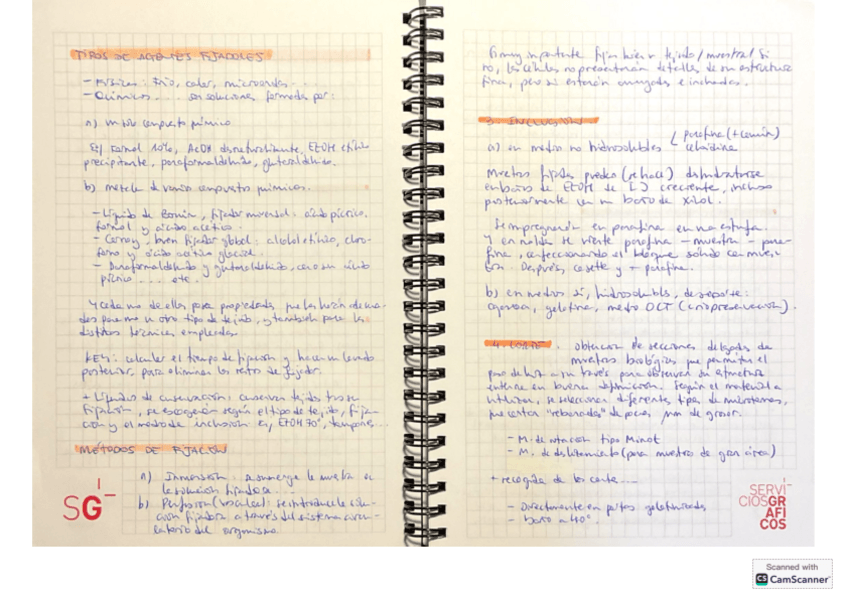 TIPOS DE AGENTES FIJADORES
- Físicos: frío, calor, microondas....
- Químicos... son soluciones formadas por:
a) un solo compuesto químico
Ej/ Formol 10%, AcOH desnaturalizante, EtOH etílico
precipitante, paraformaldehído, glutaraldehído.
b) mezcla de varios compuestos químicos.
- Líquido de Bouin, fijador universal: ácido pícrico,
formol y ácido acético.
- Carnoy, buen fijador global: alcohol etílico, cloro-
formo y ácido acético glacial.
- Paraformaldehído y glutaraldehído, con un ácido
pícrico.... etc.
Y cada uno de ellos posee propiedades que los hacen adecua-
dos para uno u otro tipo de tejido, y también para las
distintas técnicas empleadas.
KEY: calcular el tiempo de fijación y hacer un lavado
posterior para eliminar los restos de fijador.
+ Líquidos de conservación: conservan tejidos tras su
fijación, se escogerán según el tipo de tejido, fija-
ción y el método de inclusión ej, EtOH 70°, tampones...
MÉTODOS DE FIJACIÓN
a) Inmersión: se sumerge la muestra en
la solución fijadora....
b) Perfusión (vascular): se introduce la solu-
ción fijadora a través del sistema circu-
latorio del organismo.
SG
Es muy importante fijar bien el tejido/muestra/ Si
no, las células no presentarán detalles de su estructura
fina, pero sí estarán arrugadas e hinchadas.
3. INCLUSIÓN
a) en medios no hidrosolubles parafina (+ común)
celoidina
Muestras fijadas pueden (se hace) deshidratarse
en baños de EtOH de [ ] creciente, incluso
posteriormente en un baño de xilol.
Se impregnan en parafina en una estufa.
Y en moldes se vierte parafina - muestra - para-
fina, confeccionando el bloque sólido con mues-
tra. Después, casete y + parafina.
b) en medios sí, hidrosolubles, de soporte:
agarosa, gelatina, medio OCT (criopreservación).
4. CORTE: obtención de secciones delgadas de
muestras biológicas que permitan el
paso de luz a su través para observar su estructura
interna en buena definición. Según el material a
utilizar, se seleccionan diferentes tipos de microtomos,
que cortan "rebanadas" de pocas µm de grosor.
- M. de rotación tipo Minot
- M. de deslizamiento (para muestras de gran área)
+ recogida de los cortes....
- Directamente en portas gelatinizados
- baño a 40°.
SERVI
CIOSGR
AFI
COS
Scanned with
CS CamScanner